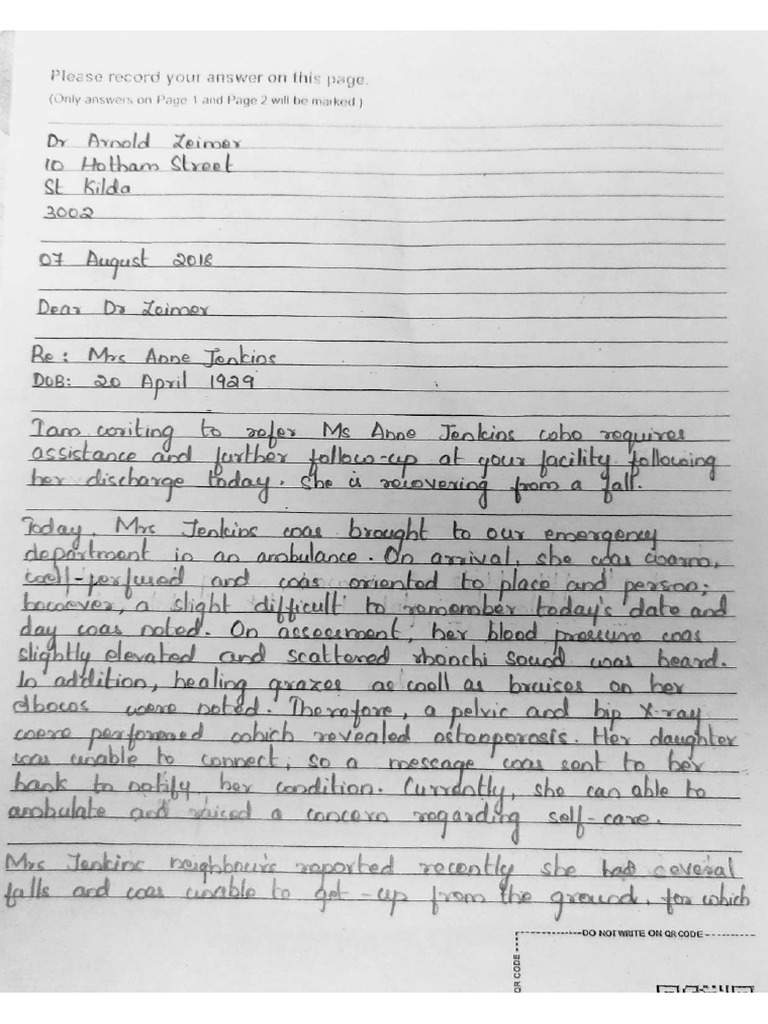 Please record your answer on this page.
(Only answers on Page 1 and Page 2 will be marked.)
Dr Arnold Zeimer
10 Hotham Street
St Kilda
3002
07 August 2018
Dear Dr Zeimer
Re: Mrs Anne Jenkins
DOB: 20 April 1929
I am writing to refer Ms Anne Jenkins who requires
assistance and further follow-up at your facility following
her discharge today. She is recovering from a fall.
Today, Mrs Jenkins was brought to our emergency
department in an ambulance. On arrival, she was warm,
well-perfused and was oriented to place and person;
however, a slight difficult to remember today's date and
day was noted. On assessment, her blood pressure was
slightly elevated and scattered rhonchi sound was heard.
In addition, healing grazes as well as bruises on her
elbows were noted. Therefore, a pelvic and hip X-ray
were performed which revealed osteoporosis. Her daughter
was unable to connect, so a message was sent to her
bank to notify her condition. Currently, she can able to
ambulate and raised a concern regarding self-care.
Mrs Jenkins neighbours reported recently she had several
falls and was unable to get-up from the ground, for which
DO NOT WRITE ON QR CODE
QR CODE